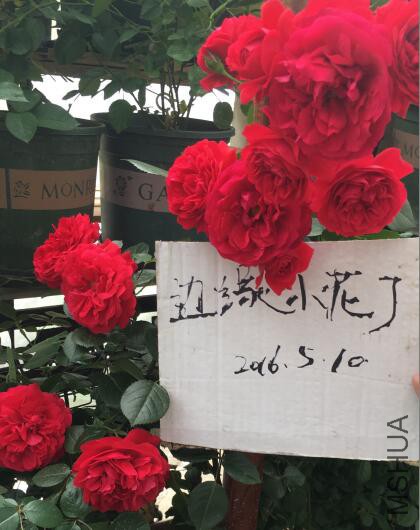 MONR
GA
边缘小花了
2016.5.10
MSHUA